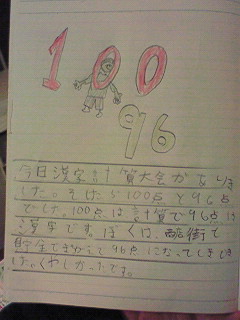 100
96
今日漢字計算大会がありま
した。そしたら100点と96点
でした。100点は計算で96点は
漢字です。ぼくは、商店街で
貯金でまちがえて96点になってしまいまし
た。くやしかったです。